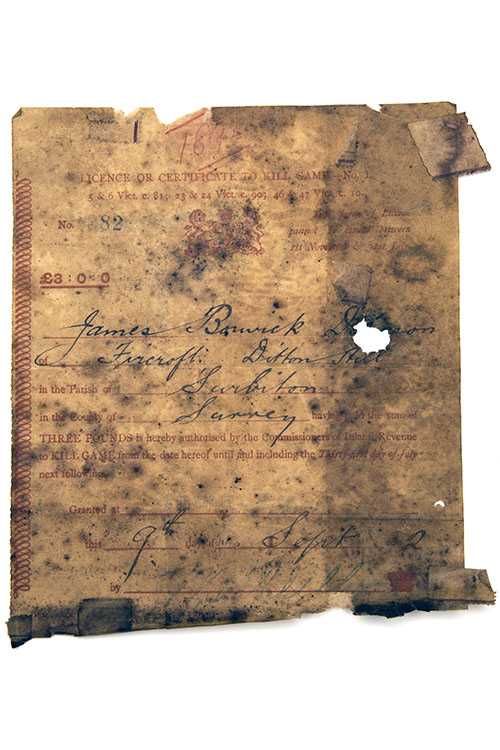 LICENCE OR CERTIFICATE TO KILL GAME.—No. 1.
5 & 6 Vict. c. 81; 23 & 24 Vict. c. 90; 46 & 47 Vict. c. 10.
No. 82
of Licence
cannot be issued between
1st November & 31st July.
£3:0:0
James Borwick
of Fircroft: Ditton Hill
in the Parish of Surbiton
in the County of Surrey having paid the sum of
THREE POUNDS is hereby authorised by the Commissioners of Inland Revenue
to KILL GAME from the date hereof until and including the Thirty-first day of July
next following.
Granted at
this 9th day of Sept 2
by